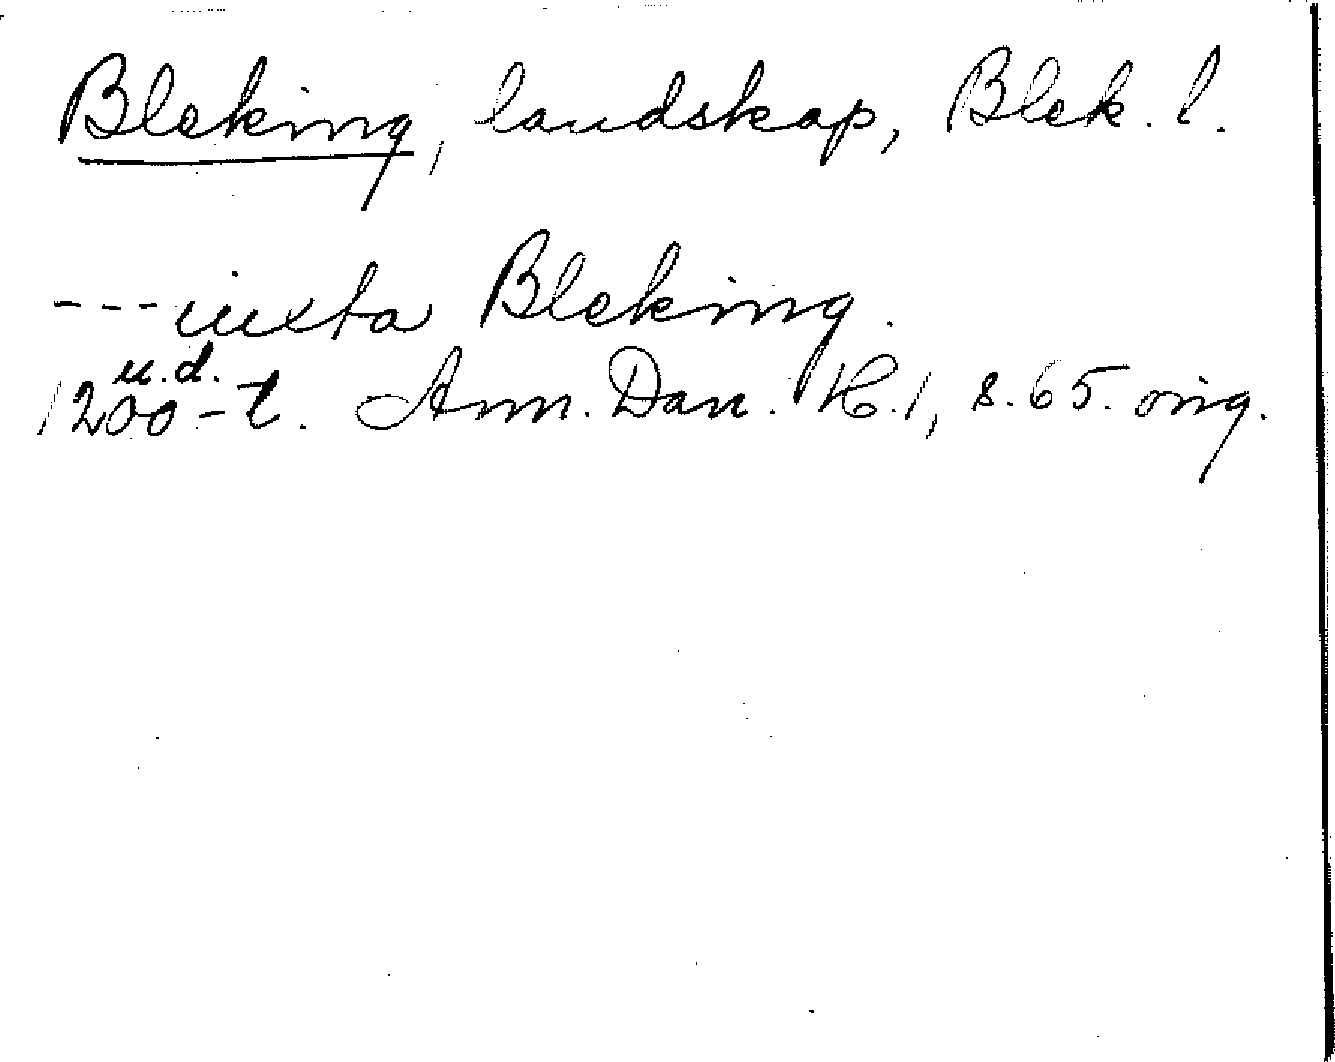 Bleking, landskap, Blek. l.
---iuxta Bleking.
u.d.
1200-t. Ann. Dan. K.1, s.65. orig.